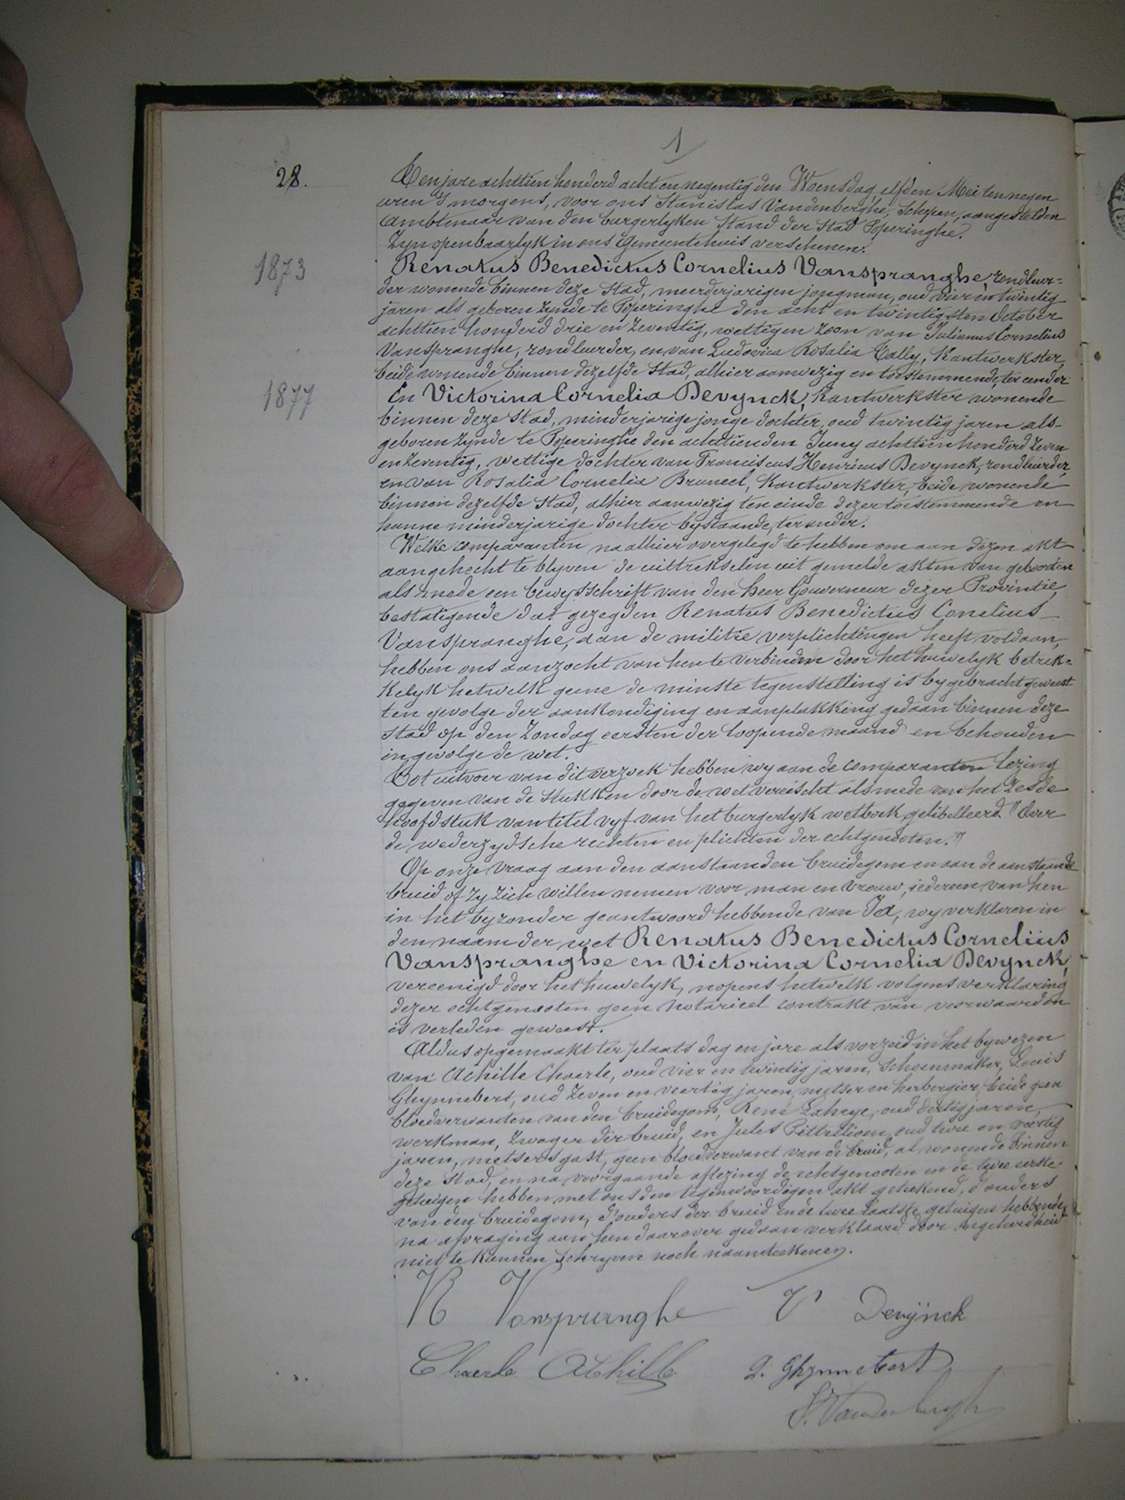 1
28.
Ten jare achttien honderd acht en negentig den Woensdag elfden Mei ten negen
uren 's morgens, voor ons Stanislas Vandenberghe, Schepen, aangestelden
Ambtenaar van den burgerlyken Stand der Stad Poperinghe.
Zyn openbaarlyk in ons Gemeentehuis verschenen:
1873
Renatus Benedictus Cornelius Vanspranghe, rondleur-
der wonende binnen deze Stad, meerderjarigen jongman, oud vier en twintig
jaren als geboren zynde te Poperinghe den acht en twintigsten October
achttien honderd drie en zeventig, wettigen zoon van Julianus Cornelius
Vanspranghe, rondleurder, en van Ludovica Rosalia Cally, Kantwerkster,
beide wonende binnen dezelfde Stad, alhier aanwezig en toestemmende, ter eender
1877
En Victorina Cornelia Devynck, Kantwerkster wonende
binnen deze Stad, minderjarige jonge dochter, oud twintig jaren als
geboren zynde te Poperinghe den achttienden Juny achttien honderd zeven
en zeventig, wettige dochter van Franciscus Henricus Devynck, rondleurder,
en van Rosalia Cornelia Bruneel, Kantwerkster, beide wonende
binnen dezelfde Stad, alhier aanwezig ten einde dezer toestemmende en
hunne minderjarige dochter bystaande, ter ander.
Welke comparanten na alhier overgelegd te hebben om aan dezen akt
aangehecht te blyven de uittrekselen uit gemelde akten van geboorten
als mede een bewysschrift van den Heer Gouverneur dezer Provintie
bestatigende dat gezegden Renatus Benedictus Conelius
Vanspranghe, aan de militie verplichtingen heeft voldaan,
hebben ons aanzocht van hen te verbinden door het huwelyk betrek-
kelyk hetwelk geene de minste tegenstelling is bygebracht geweest
ten gevolge der aankondiging en aanplakking gedaan binnen deze
Stad op den Zondag eersten der loopende maand en behouden
ingevolge de wet.
Tot uitvoer van dit verzoek hebben wy aan de comparanten lezing
gegeven van de stukken door de wet vereischt als mede van het zesde
hoofdstuk van titel vyf van het burgerlyk wetboek gelibelleerd "Over
de wederzydsche rechten en plichten der echtgenooten."
Op onze vraag aan den aanstaanden bruidegom en aan de aanstaande
bruid of zy zich willen nemen voor man en vrouw, iedereen van hen
in het byzonder geantwoord hebbende van Ja, wy verklaren in
den naam der wet Renatus Benedictus Cornelius
Vanspranghe en Victorina Cornelia Devynck,
vereenigd door het huwelyk, nopens hetwelk volgens verklaring
dezer echtgenooten geen notarieel contrakt van voorwaarden
is verleden geweest.
Aldus opgemaakt ter plaats dag en jare als voorzeid in het bywezen
van Achille Chaerle, oud vier en twintig jaren, Schoenmaker, Louis
Ghynnebert, oud zeven en veertig jaren, metser en herbergier, beide geen
bloedverwanten van den bruidegom, René Laheye, oud dertig jaren,
werkman, zwager der bruid, en Jules Pittellioen, oud twee en veertig
jaren, metsersgast, geen bloedverwant van de bruid, al wonende binnen
deze Stad, en na voorgaande aflezing de echtgenooten en de twee eerste
getuigen hebben met ons den tegenwoordigen akt geteekend, d'ouders
van den bruidegom, d'ouders der bruid en de twee laatste getuigen hebbende,
na afvraging aan hen daarover gedaan verklaard door ongeleerdheid
niet te kunnen schryven noch naamteekenen.
R Vanspranghe V Devynck
Chaerle Achille L. Ghynnebert
S. Vandenberghe